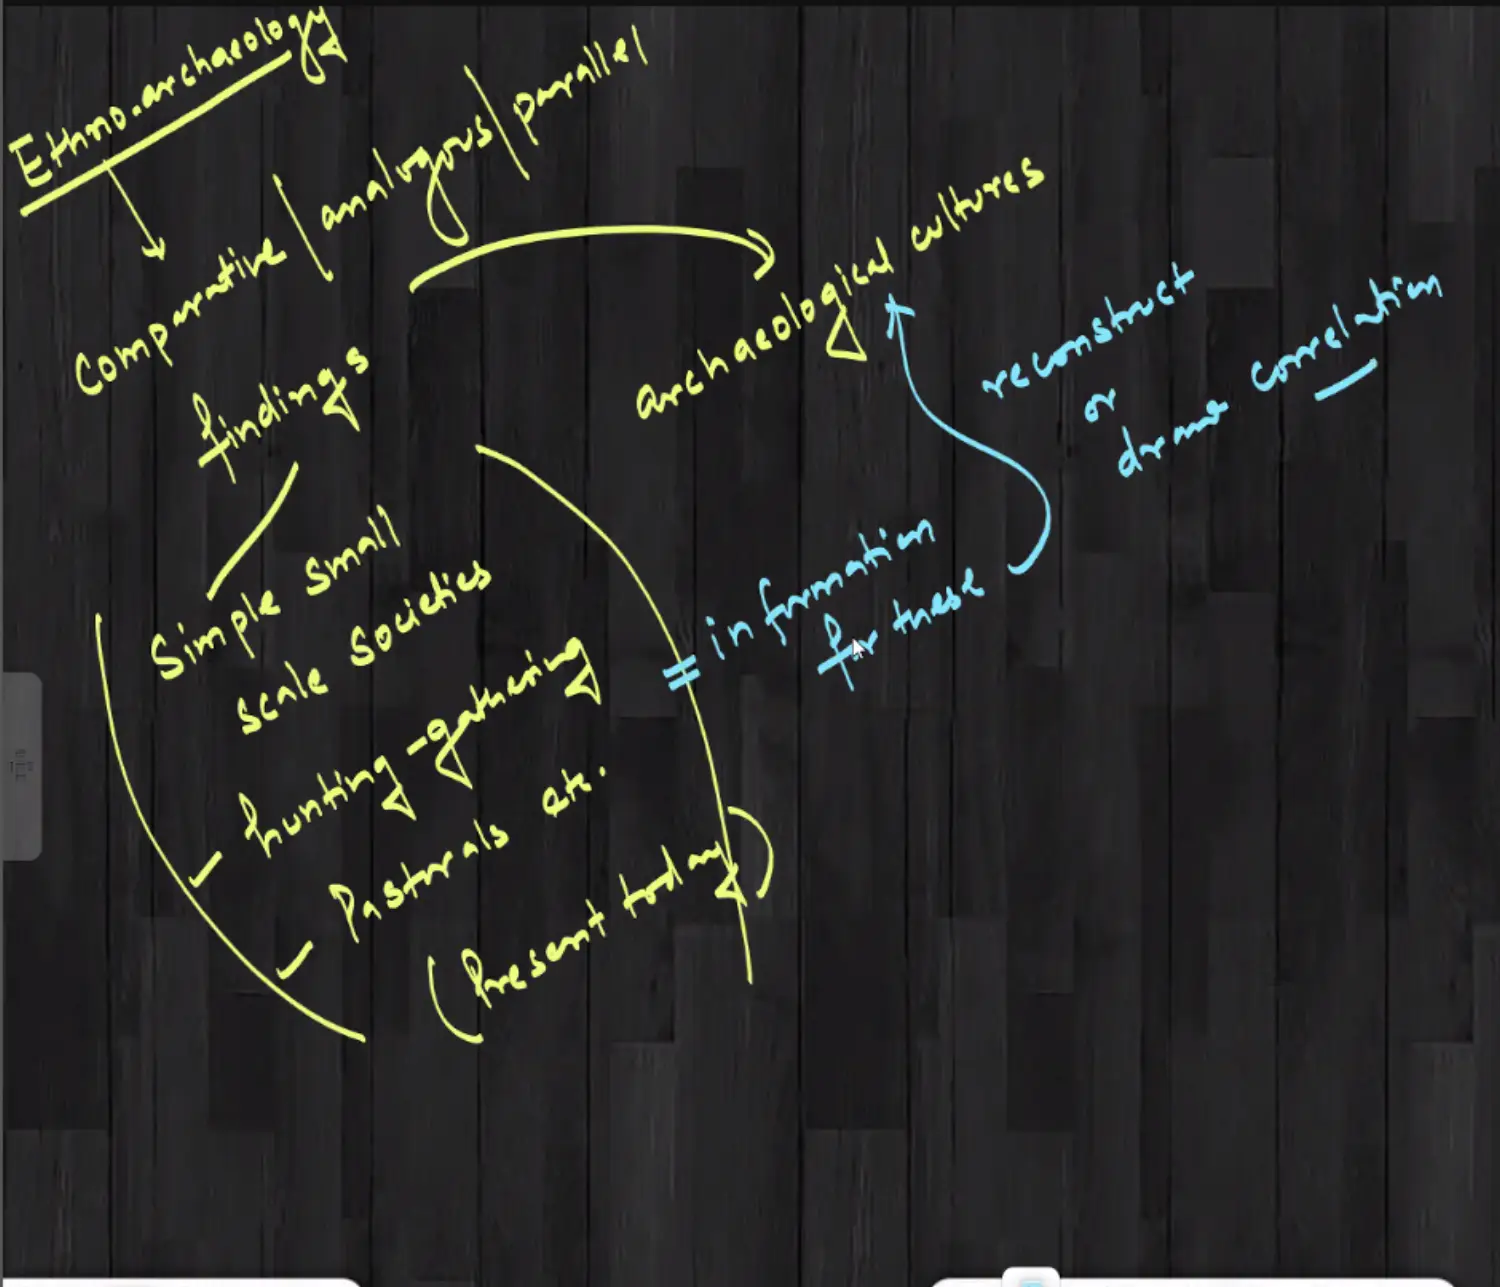 Ethno.archaeology
Comparative / analogous / parallel
findings
archaeological cultures
Simple small
scale societies
- hunting-gathering
- Pastorals etc.
(Present today)
= information
for these
reconstruct
or
draw correlation